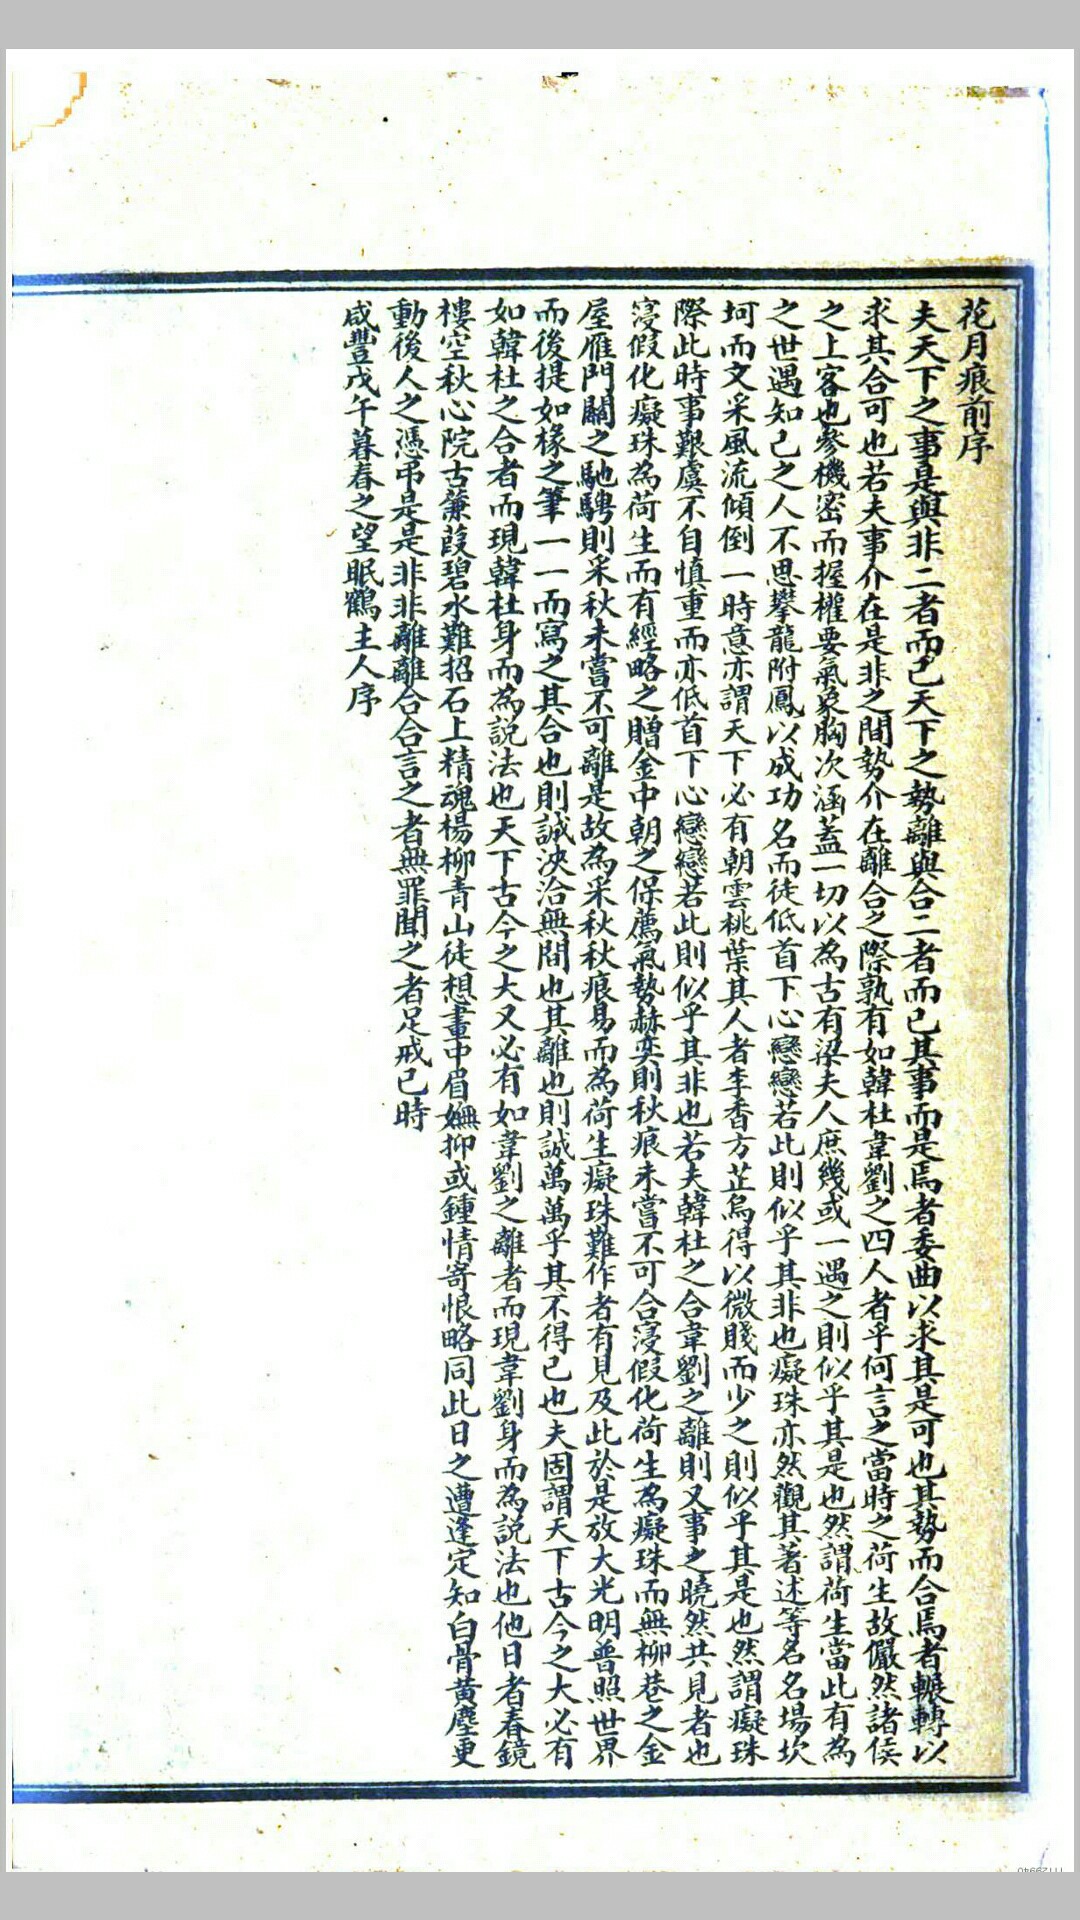 花月痕前序
夫天下之事是與非二者而已天下之勢離與合二者而已其事而是焉者委曲以求其是可也其勢而合焉者輾轉以
求其合可也若夫事介在是非之間勢介在離合之際孰有如韓杜韋劉之四人者乎何言之當時之荷生故儼然諸侯
之上客也參機密而握權要氣象胸次涵蓋一切以為古有梁夫人庶幾或一遇之則似乎其是也然謂荷生當此有為
之世遇知己之人不思攀龍附鳳以成功名而徒低首下心戀戀若此則似乎其非也癡珠亦然觀其著述等名名場坎
坷而文采風流傾倒一時意亦謂天下必有朝雲桃葉其人者李香方芷烏得以微賤而少之則似乎其是也然謂癡珠
際此時事艱虞不自慎重而亦低首下心戀戀若此則似乎其非也若夫韓杜之合韋劉之離則又事之曉然共見者也
寖假化癡珠為荷生而有經略之贈金中朝之保薦氣勢赫奕則秋痕未嘗不可合寖假化荷生為癡珠而無柳巷之金
屋雁門關之馳騁則采秋未嘗不可離是故為采秋秋痕易而為荷生癡珠難作者有見及此於是放大光明普照世界
而後提如椽之筆一一而寫之其合也則誠浹洽無間也其離也則誠萬萬乎其不得已也夫固謂天下古今之大必有
如韓杜之合者而現韓杜身而為說法也天下古今之大又必有如韋劉之離者而現韋劉身而為説法也他日者春鏡
樓空秋心院古蒹葭碧水難招石上精魂楊柳青山徒想畫中眉嫵抑或鍾情寄恨略同此日之遭逢定知白骨黃塵更
動後人之憑弔是是非非離離合合言之者無罪聞之者足戒已時
咸豐戊午暮春之望眠鶴主人序